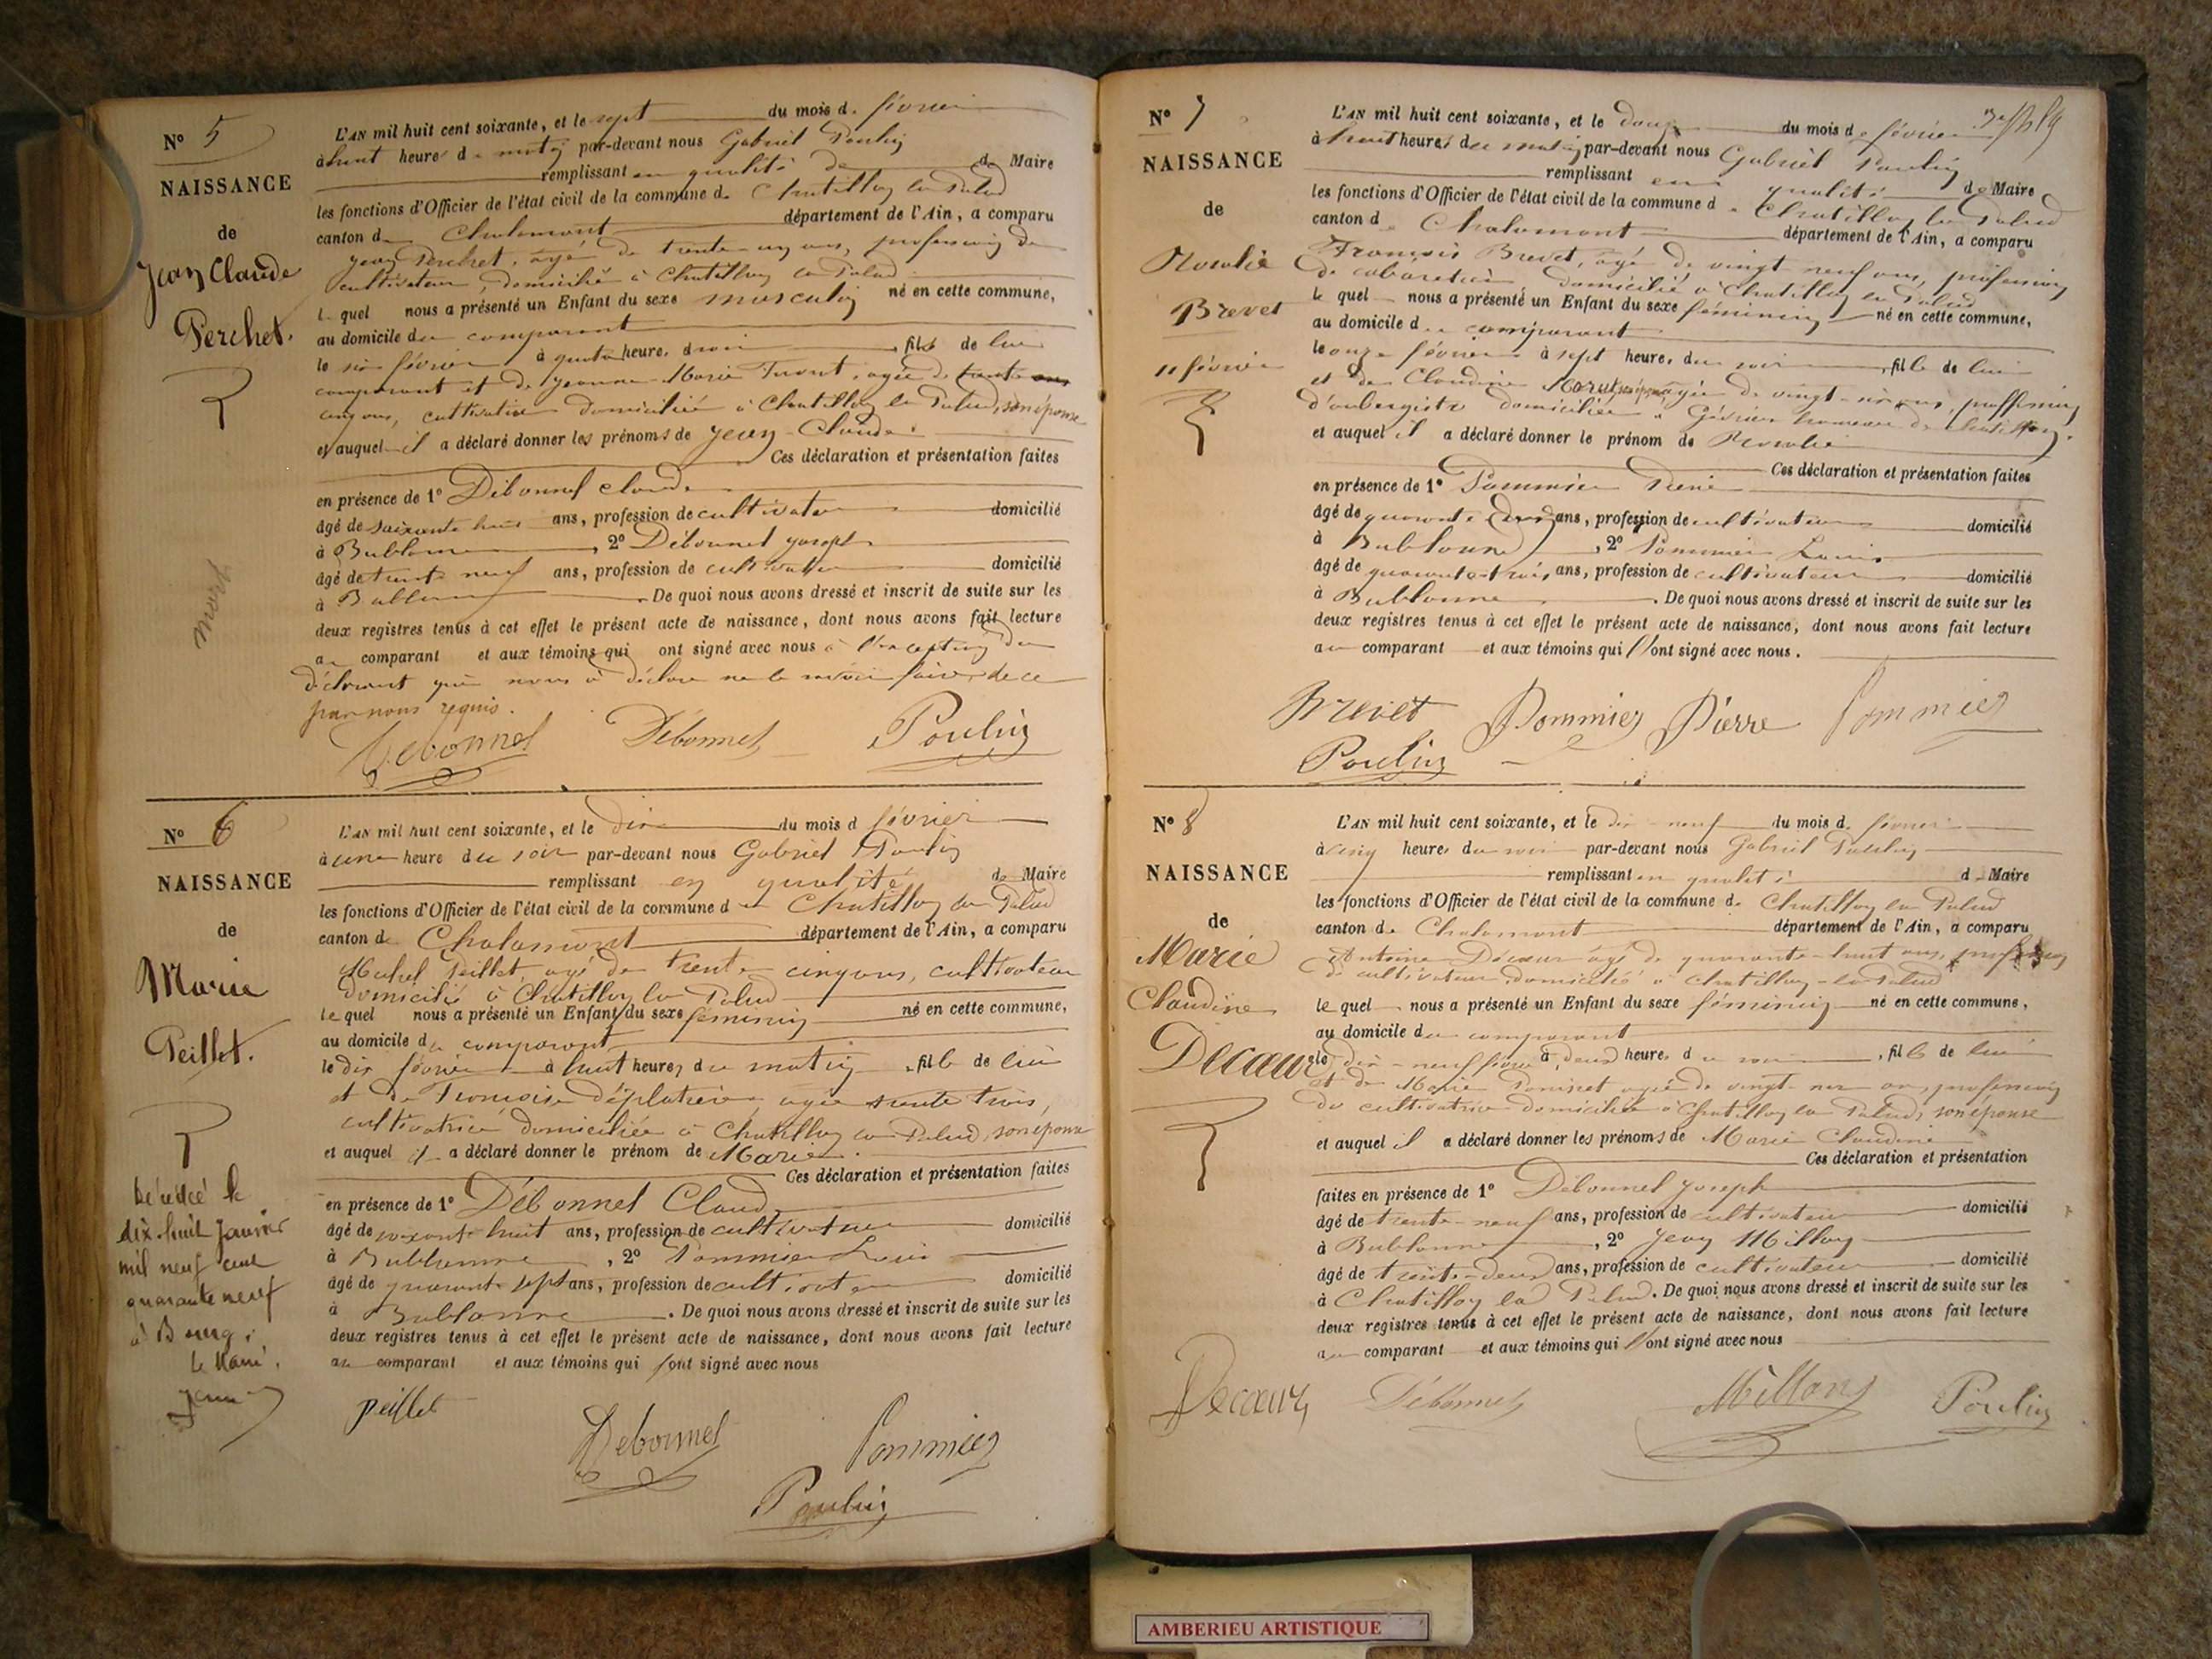 N° 5
NAISSANCE
de
Jean Claude
Perchet.
L'AN mil huit cent soixante, et le sept du mois de février
à huit heures du matin par-devant nous Gabriel Poulin
remplissant en qualité de Maire
les fonctions d'Officier de l'état civil de la commune de Chatillon la Palud
canton de Chalamont département de l'Ain, a comparu
Jean Perchet, âgé de trente-un ans, profession de
cultivateur, domicilié à Chatillon la Palud
lequel nous a présenté un Enfant du sexe masculin né en cette commune,
au domicile du comparant
le six février à quatre heures du soir, fils de lui
comparant et de Jeanne Marie âgée de trente
cinq ans, cultivatrice domiciliée à Chatillon la Palud, son épouse
et auquel il a déclaré donner les prénoms de Jean-Claude.
Ces déclaration et présentation faites
en présence de 1° Débonnel Claude
âgé de soixante huit ans, profession de cultivateur domicilié
à Bublanne, 2° Débonnel Joseph
âgé de trente neuf ans, profession de cultivateur domicilié
à Bublanne. De quoi nous avons dressé et inscrit de suite sur les
deux registres tenus à cet effet le présent acte de naissance, dont nous avons fait lecture
au comparant et aux témoins qui ont signé avec nous à l'exception du
déclarant qui nous a déclaré ne le savoir faire de ce
par nous requis.
Debonnel Débonnel Poulin
N° 6
NAISSANCE
de
Marie
Peillet.
Décédée le
dix-huit janvier
mil neuf cent
quarante neuf
à Bourg.
Le Maire.
L'AN mil huit cent soixante, et le dix du mois de février
à une heure du soir par-devant nous Gabriel Poulin
remplissant en qualité de Maire
les fonctions d'Officier de l'état civil de la commune de Chatillon la Palud
canton de Chalamont département de l'Ain, a comparu
Michel Peillet âgé de trente cinq ans, cultivateur
domicilié à Chatillon la Palud
lequel nous a présenté un Enfant du sexe féminin né en cette commune,
au domicile du comparant
le dix février à huit heures du matin, fille de lui
et de Françoise âgée trente trois,
cultivatrice domiciliée à Chatillon la Palud, son épouse
et auquel il a déclaré donner le prénom de Marie.
Ces déclaration et présentation faites
en présence de 1° Débonnel Claude
âgé de soixante huit ans, profession de cultivateur domicilié
à Bublanne, 2° Pommier Louis
âgé de quarante sept ans, profession de cultivateur domicilié
à Bublanne. De quoi nous avons dressé et inscrit de suite sur les
deux registres tenus à cet effet le présent acte de naissance, dont nous avons fait lecture
au comparant et aux témoins qui ont signé avec nous
peillet
Debonnel Pommier
Poulin
N° 7
NAISSANCE
de
Rosalie
Brevet
11 février
L'AN mil huit cent soixante, et le douze du mois de février
à huit heures du matin par-devant nous Gabriel Poulin
remplissant en qualité de Maire
les fonctions d'Officier de l'état civil de la commune de Chatillon la Palud
canton de Chalamont département de l'Ain, a comparu
François Brevet, âgé de vingt neuf ans, profession
de cabaretier domicilié à Chatillon la Palud
lequel nous a présenté un Enfant du sexe féminin né en cette commune,
au domicile du comparant
le onze février à sept heures du soir, fille de lui
et de Claudine son épouse âgée de vingt ans, proffession
d'aubergiste domiciliée à Gévrieux hameau de chatillon.
et auquel il a déclaré donner le prénom de Rosalie
Ces déclaration et présentation faites
en présence de 1° Pommier Pierre
âgé de quarante ans, profession de cultivateur domicilié
à Bublanne, 2° Pommier Louis
âgé de quarante-trois ans, profession de cultivateur domicilié
à Bublanne. De quoi nous avons dressé et inscrit de suite sur les
deux registres tenus à cet effet le présent acte de naissance, dont nous avons fait lecture
au comparant et aux témoins qui l'ont signé avec nous.
Brevet Pommier Pierre Pommier
Poulin
N° 8
NAISSANCE
de
Marie
Claudine
Decœur
L'AN mil huit cent soixante, et le dix-neuf du mois de février
à cinq heures du soir par-devant nous Gabriel Poulin
remplissant en qualité de Maire
les fonctions d'Officier de l'état civil de la commune de Chatillon la Palud
canton de Chalamont département de l'Ain, a comparu
Antoine Decœur âgé de quarante-huit ans, profession
de cultivateur domicilié à Chatillon-la-Palud
lequel nous a présenté un Enfant du sexe féminin né en cette commune,
au domicile du comparant
le dix-neuf février à deux heures du soir, fille de lui
et de Marie âgée de vingt ans, profession
de cultivatrice domiciliée à Chatillon la Palud, son épouse
et auquel il a déclaré donner les prénoms de Marie Claudine
Ces déclaration et présentation
faites en présence de 1° Débonnel Joseph
âgé de trente-neuf ans, profession de cultivateur domicilié
à Bublanne, 2° Jean Millon
âgé de trente-deux ans, profession de cultivateur domicilié
à Chatillon la Palud. De quoi nous avons dressé et inscrit de suite sur les
deux registres tenus à cet effet le présent acte de naissance, dont nous avons fait lecture
au comparant et aux témoins qui l'ont signé avec nous
Decœur Débonnel Millon Poulin
AMBERIEU ARTISTIQUE